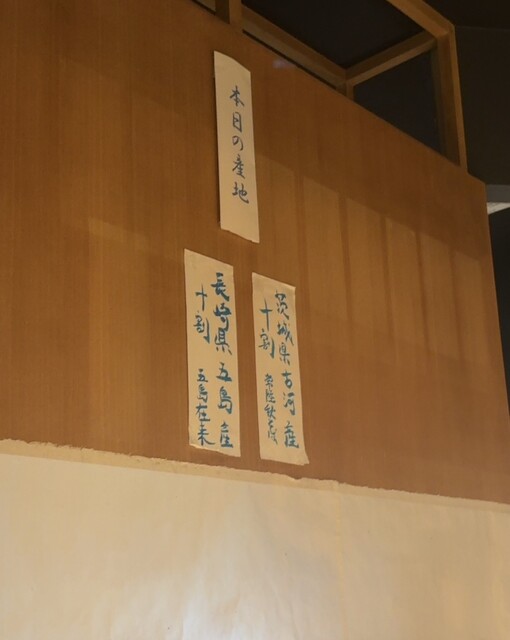 本日の産地
茨城県古河産
十割 常陸秋そば
長崎県五島産
十割 五島在来